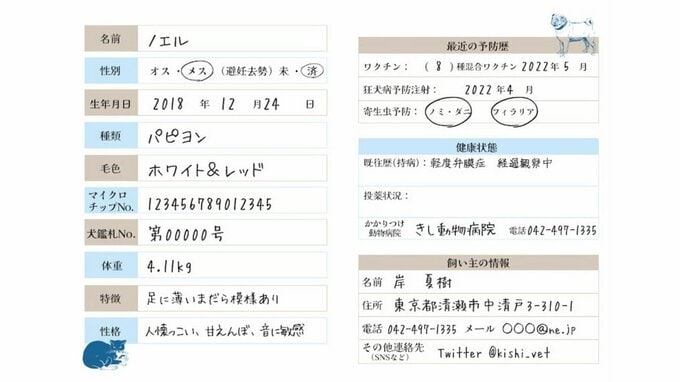 名前 ノエル
性別 オス・メス (避妊去勢) 未・済
生年月日 2018 年 12 月 24 日
種類 パピヨン
毛色 ホワイト&レッド
マイクロ
チップNo. 123456789012345
犬鑑札No. 第00000号
体重 4.11kg
特徴 足に薄いまだら模様あり
性格 人懐っこい、甘えんぼ、音に敏感
最近の予防歴
ワクチン: (8)種混合ワクチン 2022年5月
狂犬病予防注射: 2022年4月
寄生虫予防: ノミ・ダニ フィラリア
健康状態
既往歴(持病): 軽度弁膜症 経過観察中
投薬状況:
かかりつけ
動物病院 きし動物病院 電話042-497-1335
飼い主の情報
名前 岸 夏樹
住所 東京都清瀬市中清戸3-310-1
電話 042-497-1335 メール 〇〇〇@ne.jp
その他連絡先
(SNSなど) Twitter @kishi_vet